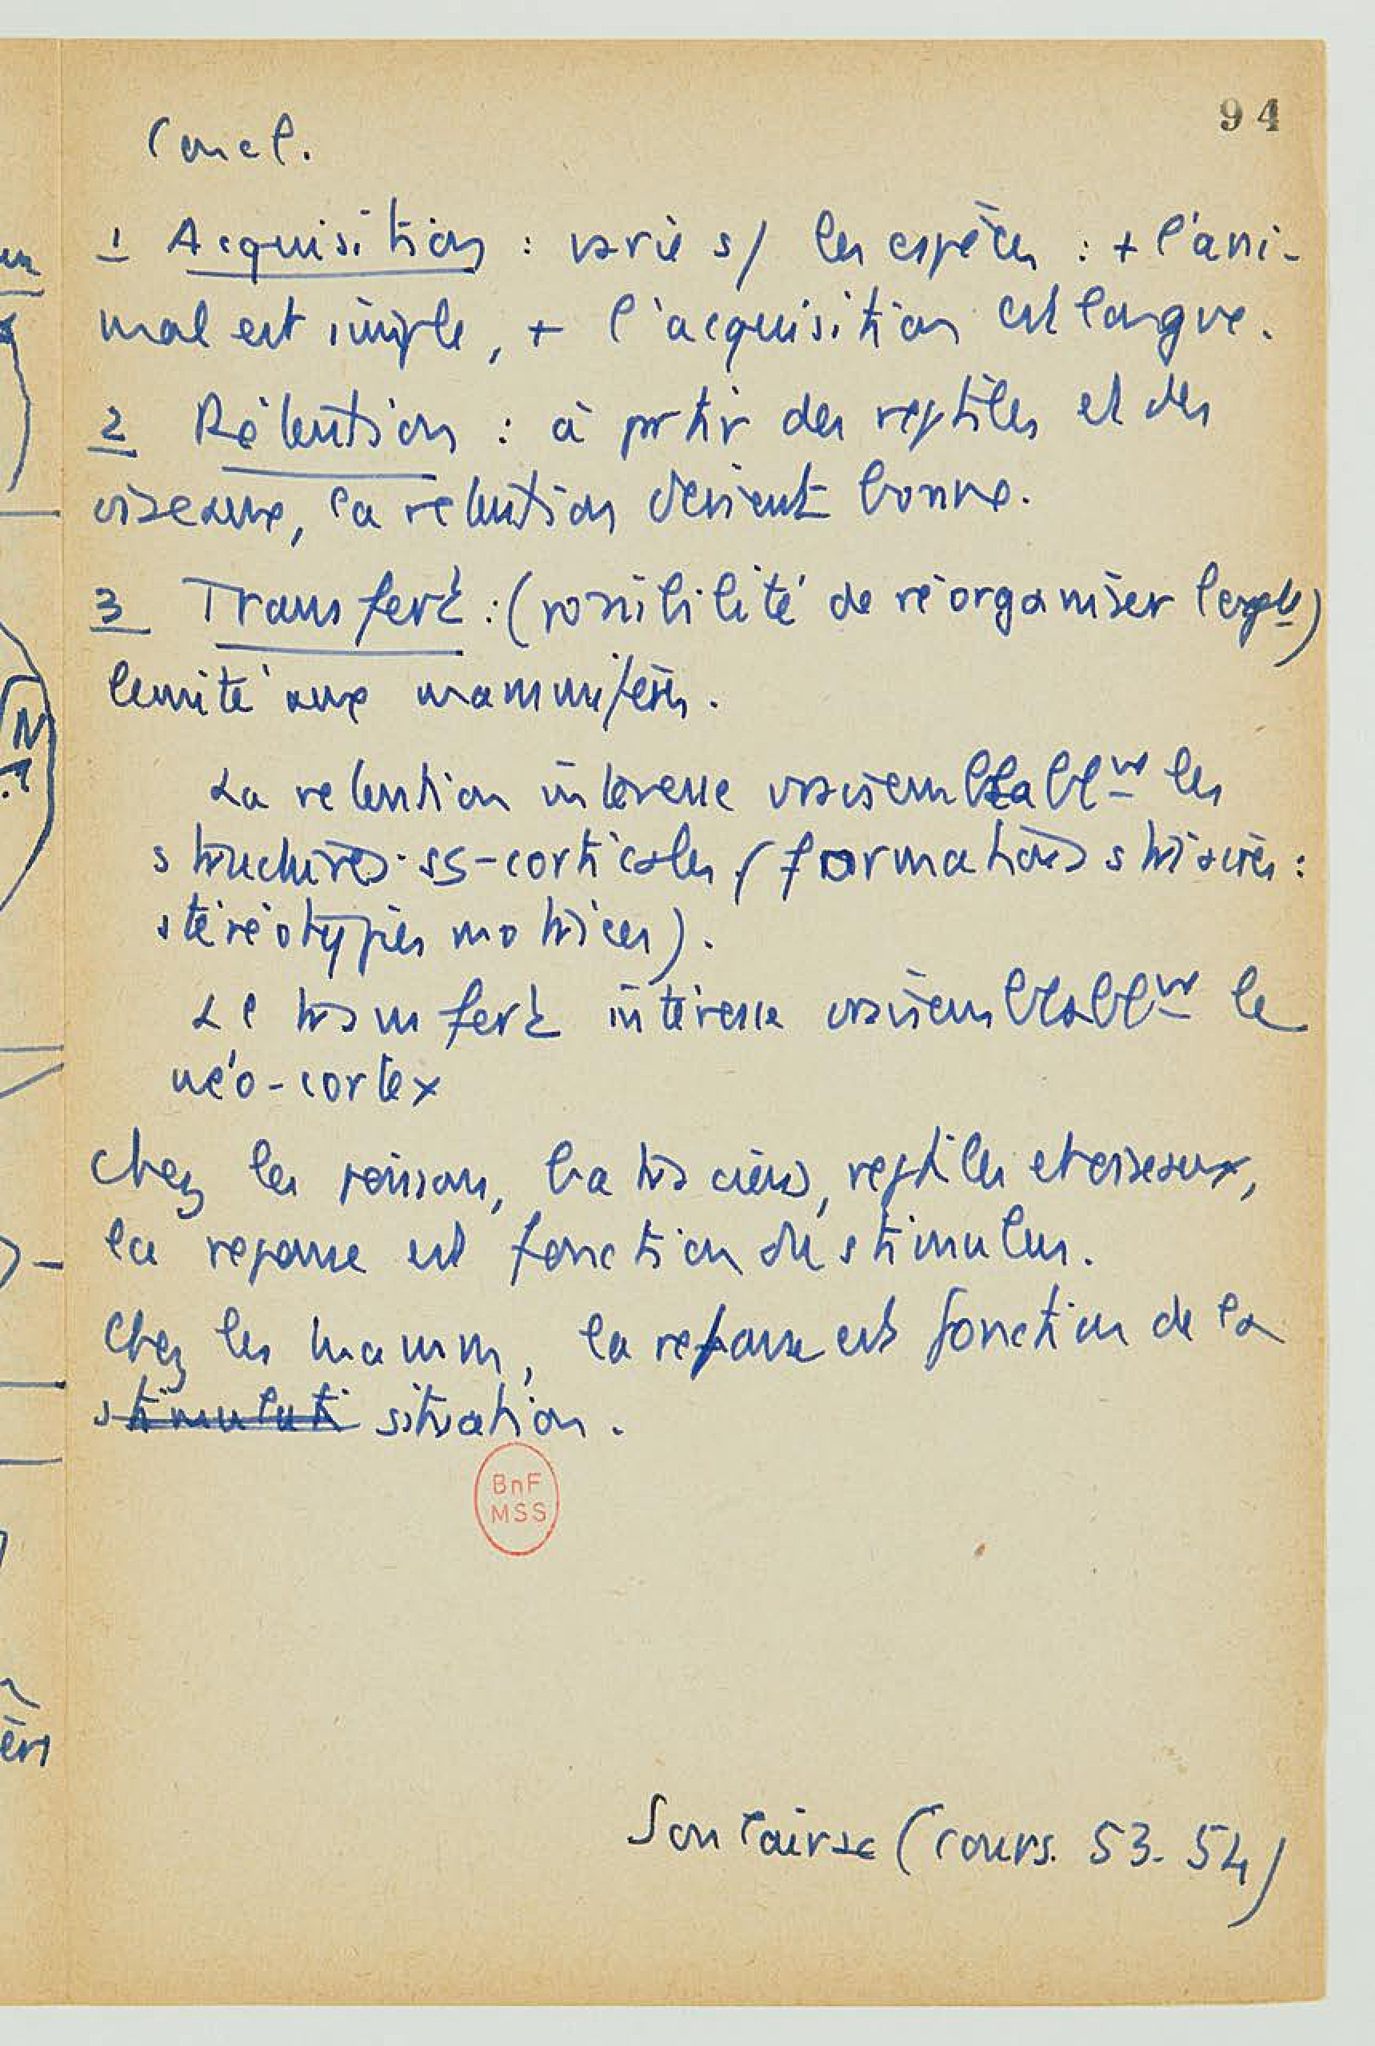 94
Concl.
1 Acquisition : varie s/ les espèces : + l'ani-
mal est simple, + l'acquisition est longue.
2 Rétention : à partir des reptiles et des
oiseaux, la retention devient bonne.
3 Transfert : (possibilité de réorganiser )
limité aux mammifères.
La retention intéresse vraisemblablt les
structures ss-corticales (formations striaires :
stéréotypies motrices).
Le transfert intéresse vraisemblablt le
néo-cortex
Chez les poissons, batraciens, reptiles et oiseaux,
la reponse est fonction du stimulus.
Chez les mamm, la reponse est fonction de la
stimulati situation.
BnF
MSS
Soulairac (Cours. 53-54)